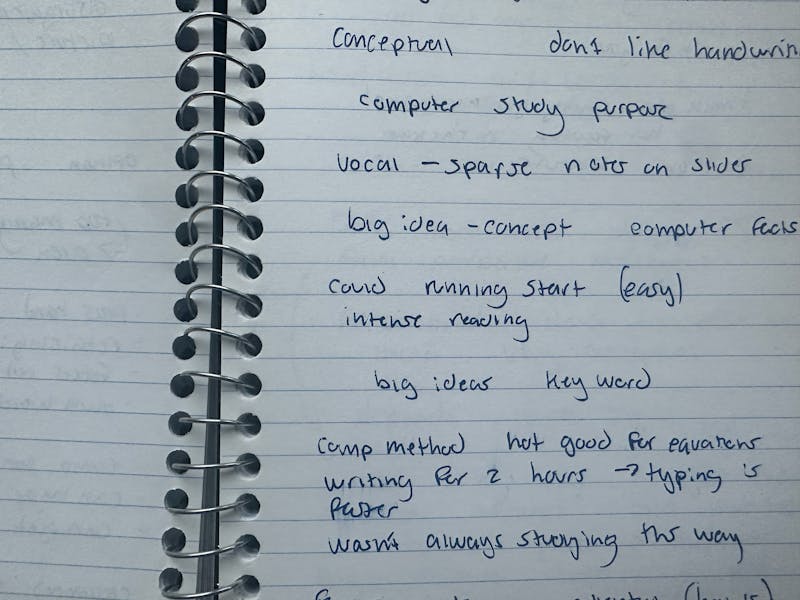 Conceptual don't like handwrin
computer study purpose
vocal - sparse notes on slides
big idea - concept computer facts
could running start (easy)
intense reading
big ideas key word
comp method not good for equations
writing for 2 hours → typing is
faster
wasn't always studying this way